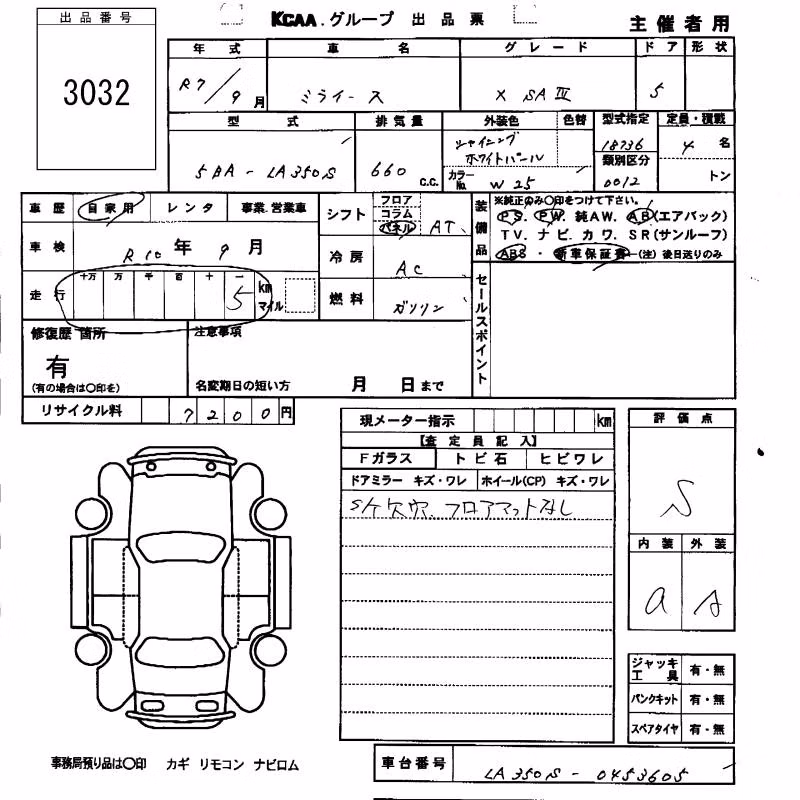 KCAA.グループ 出品票
主催者用
出品番号
3032
年式 車名 グレード ドア 形状
R7/9月 ミライース X SAⅣ 5
型式 排気量 外装色 色替 型式指定 定員・積載
5BA-LA350S 660 c.c. シャイニングホワイトパール カラーNo. W25 18736 4名
類別区分
0012 トン
車歴 自家用 レンタ 事業.営業車
シフト フロア コラム パネル AT
装備品
※純正のみ〇印をつけて下さい。
PS. PW. 純AW. AB(エアバック)
TV. ナビ. カワ. SR(サンルーフ)
ABS・新車保証書-(注)後日送りのみ
車検 R10年 9月
冷房 AC
走行 十万 万 千 百 十 一
5 km マイル
燃料 ガソリン
セールスポイント
修復歴 箇所
有
(有の場合は〇印を)
注意事項
名変期日の短い方 月 日まで
リサイクル料 7200円
現メーター指示 km
【査定員記入】
Fガラス トビ石 ヒビワレ
ドアミラー キズ・ワレ ホイール(CP) キズ・ワレ
S/ケ欠穴. フロアマットなし
評価点
S
内装 外装
a A
ジャッキ工具 有・無
パンクキット 有・無
スペアタイヤ 有・無
事務局預り品は〇印 カギ リモコン ナビロム
車台番号 LA350S-0453605